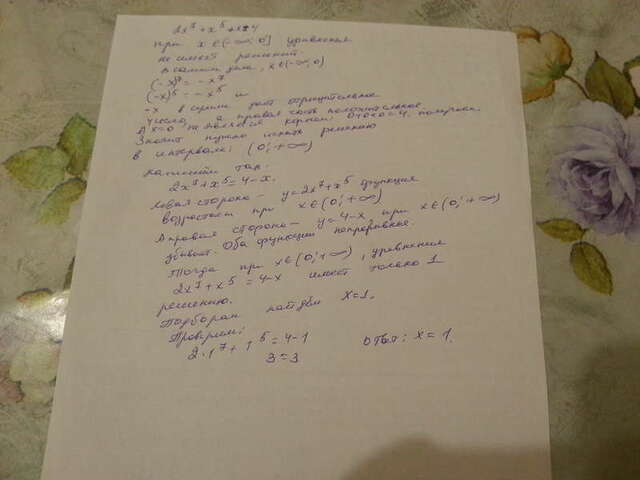 2x⁷+x⁵+x=4
при x∈(-∞;0] уравнение
не имеет решений.
В самом деле, x∈(-∞;0)
(-x)⁷ = -x⁷
(-x)⁵ = -x⁵ и
-x в сумме дают отрицательное
число, а правая часть положительное
А x=0 не является корнем: 0+0+0=4, получаем.
Значит нужно искать решению
в интервале: (0;+∞)
Напишем так:
2x⁷+x⁵=4-x.
Левая сторона - y=2x⁷+x⁵ функция
возрастает при x∈(0;+∞)
А правая сторона - y=4-x при x∈(0;+∞)
убывает. Оба функции непрерывные.
Тогда при x∈(0;+∞), уравнение
2x⁷+x⁵=4-x имеет только 1
решению.
Подборам найдём x=1.
Проверяем:
2·1⁷+1⁵=4-1 Ответ: x=1.
3=3